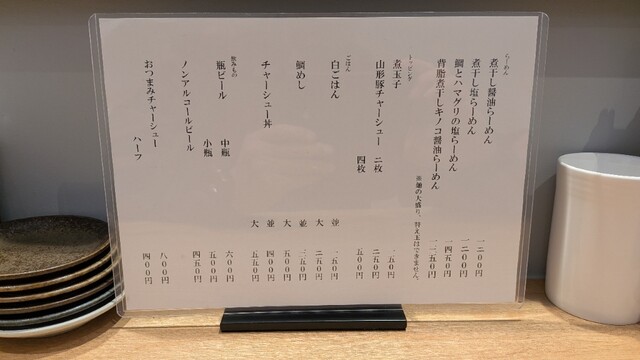 らーめん
煮干し醤油らーめん 一二〇〇円
煮干し塩らーめん 一二〇〇円
鯛とハマグリの塩らーめん 一四五〇円
背脂煮干しキノコ醤油らーめん 一二五〇円
※麺の大盛り、替え玉はできません。
トッピング
煮玉子 一五〇円
山形豚チャーシュー 二枚 二五〇円
四枚 五〇〇円
ごはん
白ごはん 並 一五〇円
大 二五〇円
鯛めし 並 三五〇円
大 五〇〇円
チャーシュー丼 並 四〇〇円
大 五五〇円
飲みもの
瓶ビール 中瓶 六〇〇円
小瓶 五〇〇円
ノンアルコールビール 四五〇円
おつまみチャーシュー 八〇〇円
ハーフ 四〇〇円